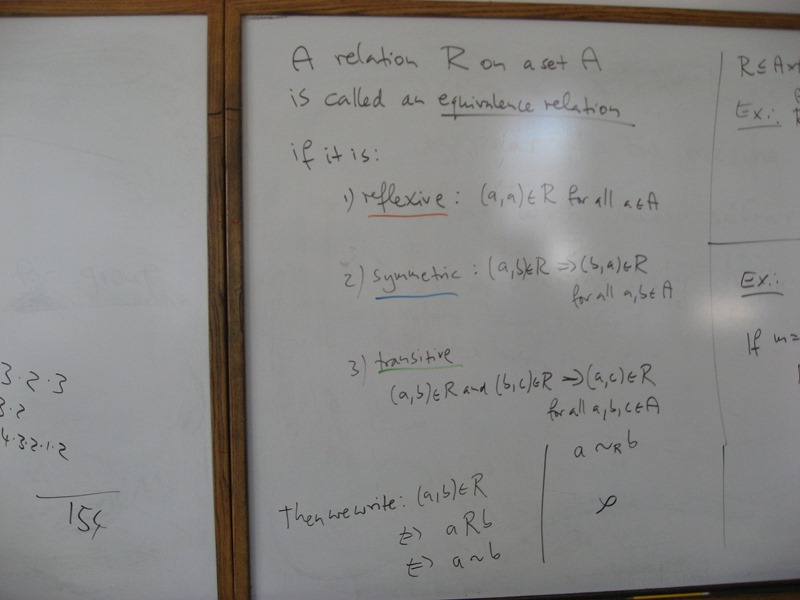 A relation R on a set A
is called an equivalence relation
if it is:
1) reflexive: (a,a)∈R for all a∈A
2) symmetric: (a,b)∈R ⇒ (b,a)∈R
for all a,b∈A
3) transitive
(a,b)∈R and (b,c)∈R ⇒ (a,c)∈R
for all a,b,c∈A
Then we write: (a,b)∈R
⇔ aRb
⇔ a~b
a ~R b
R ⊆ A×
Ex.:
Ex.:
If m=
3·2·3
3·2
4·3·2·1·2
154